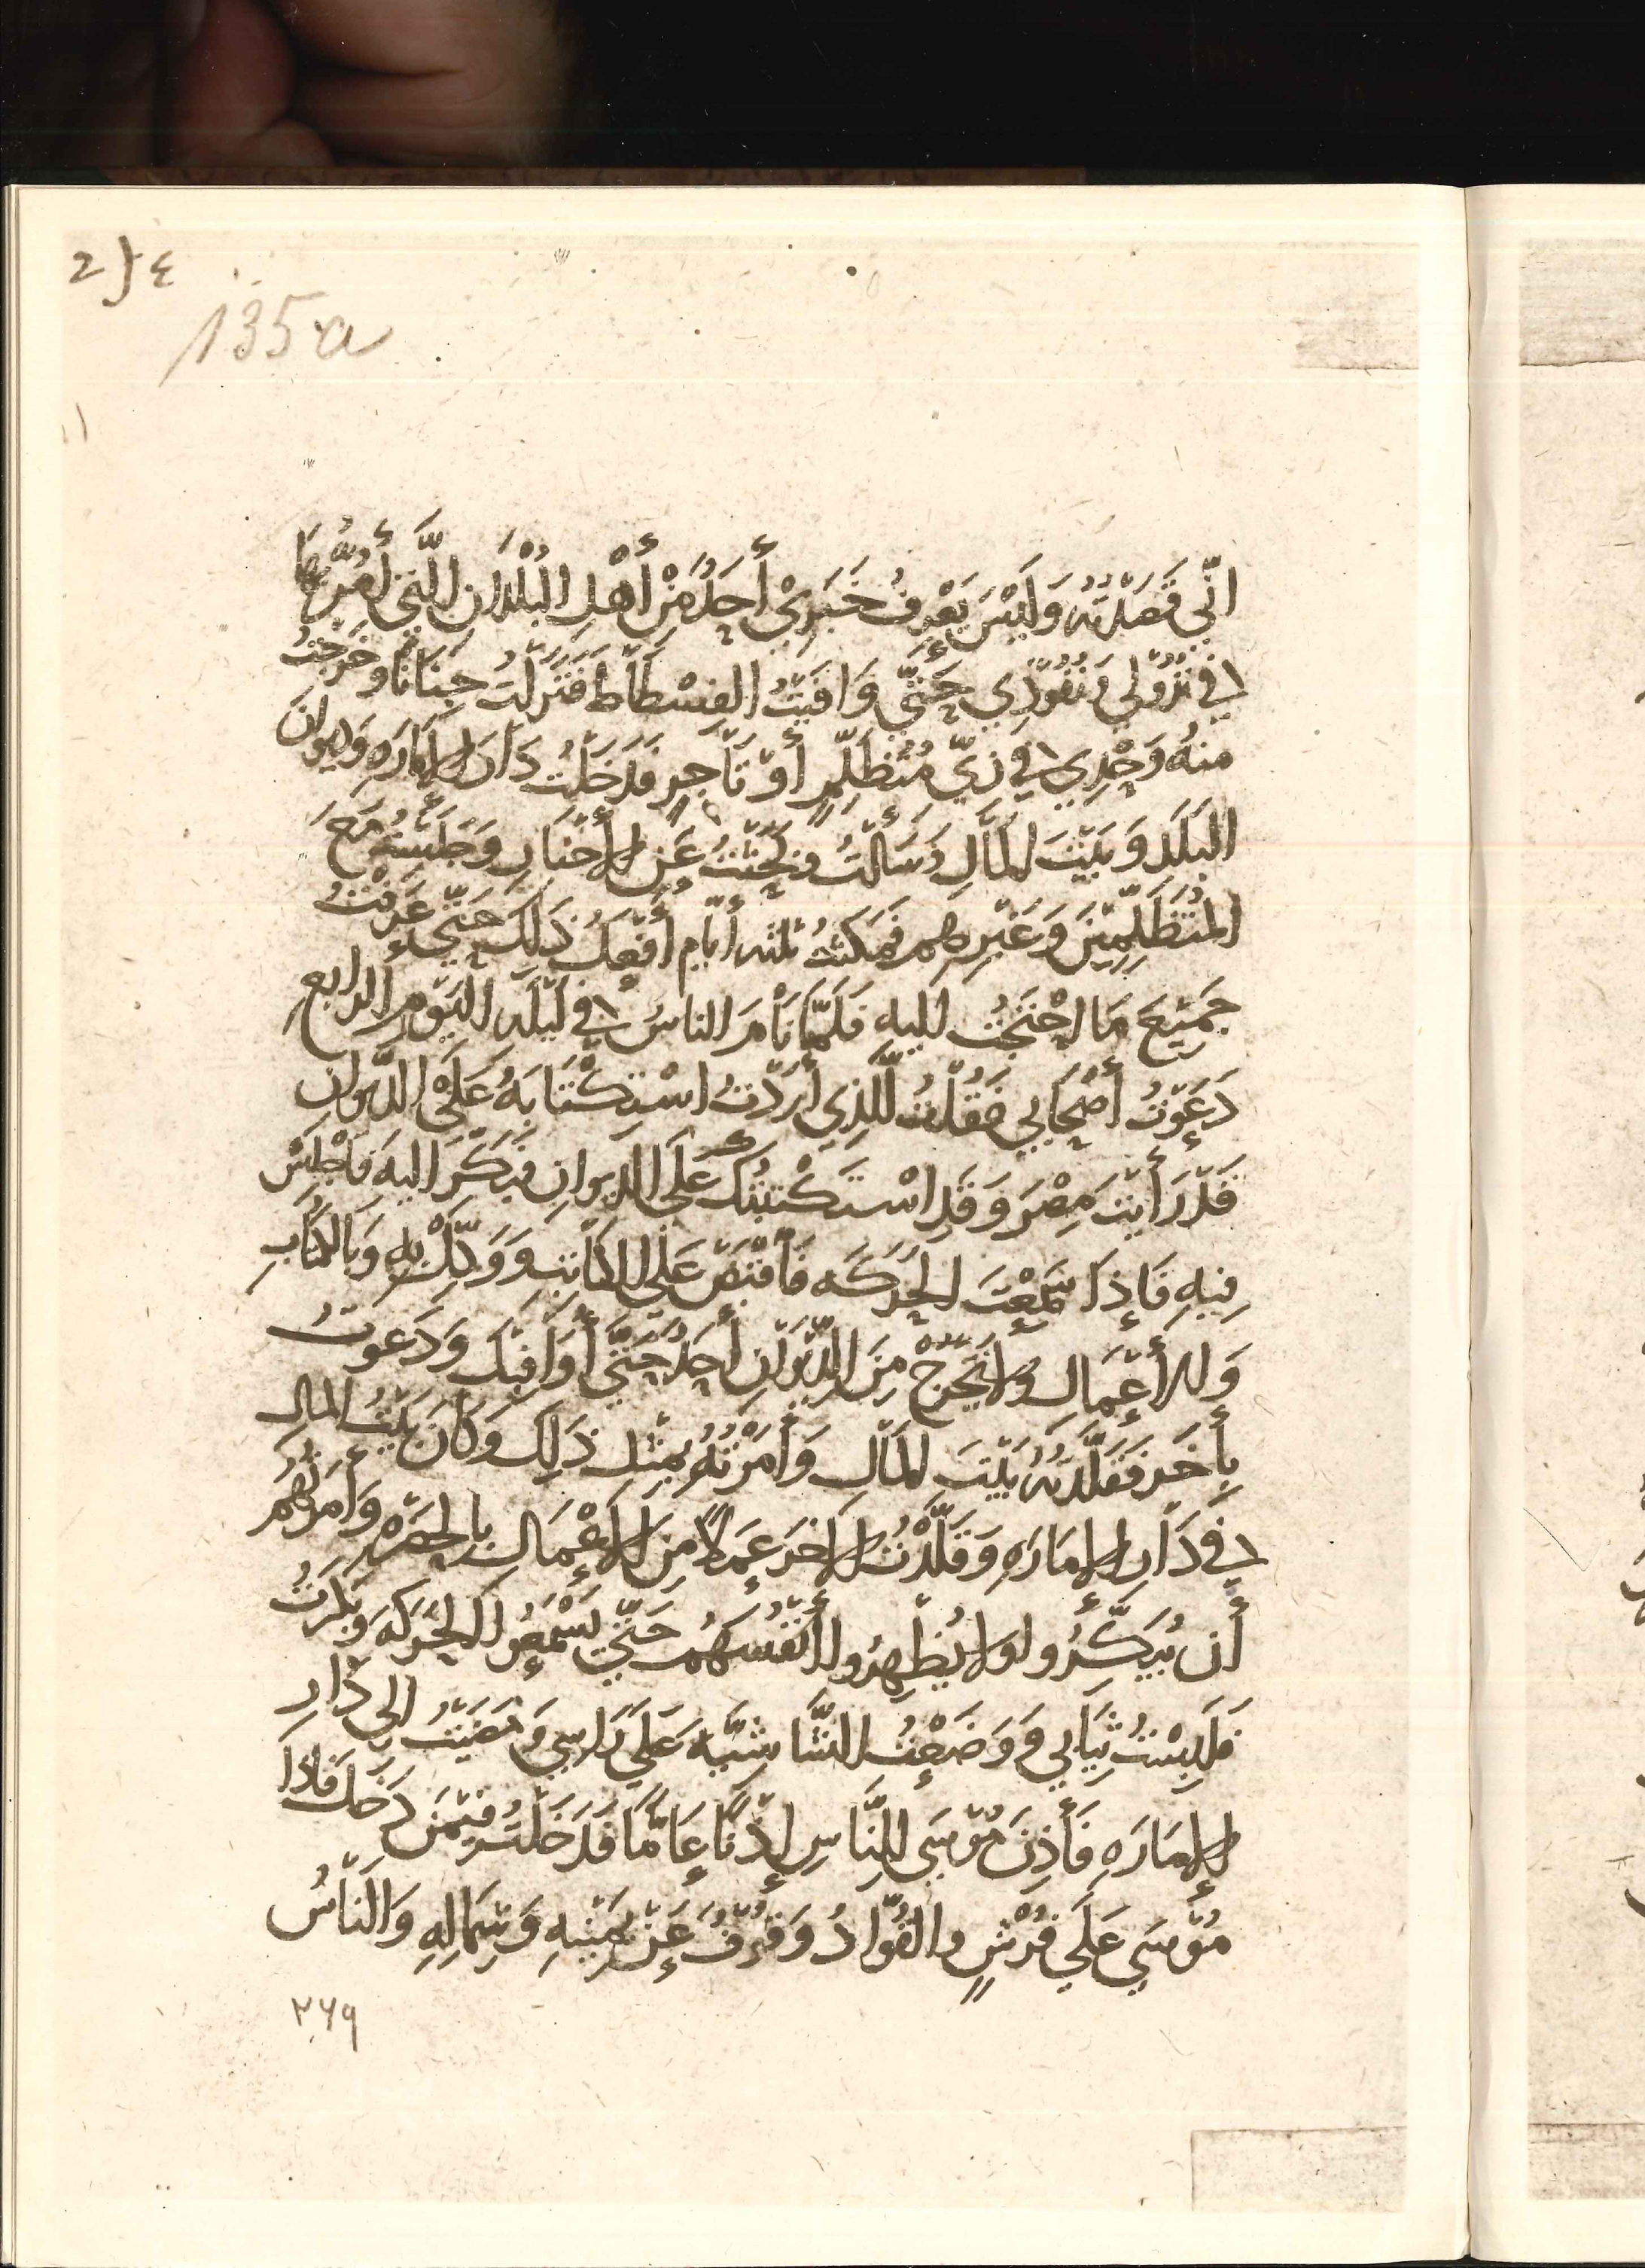 2}٤
135a
انّي قَصَدْتُه وَلَيْسَ يَعْرِفُ خَبَرِيْ أَحَدٌ مِنْ أَهْلِ الْبُلْدَانِ الَّتِي أَمُرُّ بِهَا
فِي نُزُوْلِي وَنُفُوْذِي حَتَّى وَافَيْتُ الفِسْطَاطَ فَنَزَلْتُ جِنَانًا وَخَرَجْتُ
مِنهُ وَحْدِي فِي زِيِّ مُتَظَلِّمٍ أَوْ تَاجِرٍ فَدَخَلْتُ دَارَ الإمَارَهِ وَدِيوَانَ
البَلَدِ وَبَيْتَ المَالِ وَسَأَلْتُ وبَحَثْتُ عَنِ الأَخْبَارِ وَجَلَسْتُ مَعَ
المُتَظَلِّمِيْنَ وَغَيْرِهِم فَمَكَثْتُ ثلثه أيّام أَفْعَلُ ذَلِكَ حَتَّى عَرَفْتُ
جَمِيْعَ مَا احْتَجْتُ إليهِ فَلَمَّا نَامَ الناسُ فِي لَيْلَه اليَوْمِ الرابعِ
دَعَوْتُ أَصْحَابِي فَقُلْتُ لِلَّذِي أَرَدْتُ اسْتِكْتَابَهُ عَلَى الدِّيوَانِ
قَدْ رَأَيْتَ مِصْرَ وَقَدِ اسْتَكْتَبْتُكَ عَلَى الدِيوانِ فبَكِّرَ اليهَ فَاجْلِسْ
فِيهِ فَإِذَا سَمِعْتَ الحَرَكَه فَاقْبَضْ عَلَى الكَاتِبِ وَوَكِّلْ بِهِ وَبالكُتَّابِ
وَالأَعْمَالِ وَلا يَخْرُجْ مِنَ الدِّيْوَانِ أَحَدٌ حَتَّى أُوَافِيَكَ وَدَعَوتُ
بِأَخَرَ فَقَلَّدْتُهُ بَيْتَ المَالِ وَأَمَرْتُهُ بِمِثْلِ ذَلِكَ وَكَانَ بَيْتُ المالِ
فِي دَارِ الإمَارَهِ وَقَلَّدْتُ الاخَرَ عَمَلاً مِنَ الاعْمَالِ بِالحَضْرَهِ وَأَمَرْتُهُم
أَن يُبَكِّرُوا وَلا يُظْهِرُوا أَنْفُسَهُم حَتَّى يَسْمَعُوا الحَرَكَهَ وَبَكَّرْتُ
فَلَبِسْتُ ثِيَابِي وَوَضَعْتُ الشَّاشِيَّهَ عَلَى رَاسِي وَمَضَيْتُ الى دَارِ
الإمَارَهِ فَأَذِنَ مُوْسَى لِلنَّاسِ إِذْنًا عَامًّا فَدَخَلْتُ فِيْمَن دَخَلَ فَإذَا
مُوْسَى عَلَى فُرْشٍ والقُوَّادُ وُقُوْفٌ عَنْ يَمِيْنِهِ وَشِمَالِهِ وَالنَّاسُ
۲۶۹